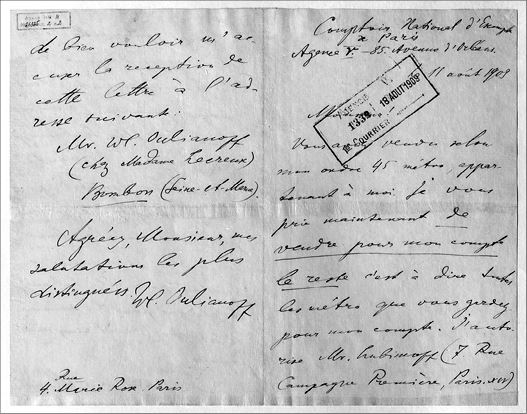 Comptoir National d'Escompte
à Paris
Agence V. 85 Avenue d'Orléans.
11 août 1909
AGENCE V.
1339 18 AOUT 1909
COURRIER
Vous avez vendu selon
mon ordre 45 métro appar-
tenant à moi. Je vous
prie maintenant de
vendre pour mon compte
le reste c'est à dire toutes
les métro que vous gardez
pour mon compte. J'auto-
rise Mr. Lubimoff (7 Rue
Campagne Première, Paris. XIV)
de bien vouloir m'ac-
cuser la reception de
cette lettre à l'ad-
resse suivante:
Mr. Wl. Oulianoff
(chez Madame Lecreux)
Bombon (Seine-et-Marne)
Agréez, Monsieur, mes
salutations les plus
distinguées. Wl. Oulianoff
Rue
4. Marie Rose. Paris